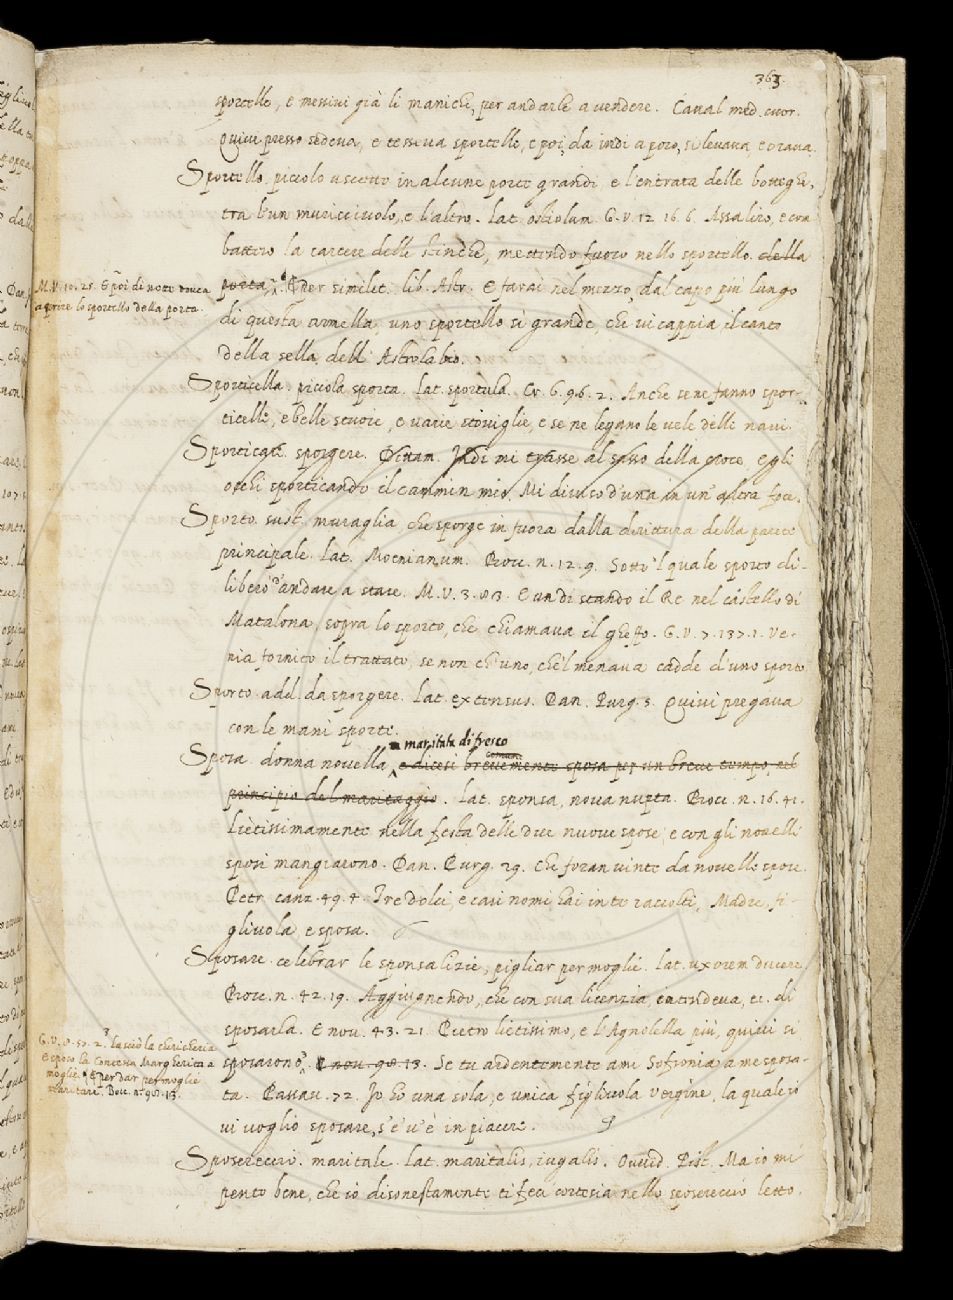 363.
sportelle, e messivi già li manichi, per andarle a vendere. Caual. med. cuor.
Quiui presso sedeua, e tesseua sportelle, e poi, da indi a poco, si leuaua, e oraua.
Sportello. piccolo uscetto in alcune porte grandi, e l'entrata delle botteghe,
tra l'un muricciuolo, e l'altro. lat. ostiolum. G. V. 12. 16. 6. Assaliro, e com
battero la carcere delle stinche, mettendo fuoco nello sportello. della
porta. E per similit. lib. Astr. E farai nel mezzo, dal capo più lungo
di questa armella, uno sportello sì grande, che vi cappia il canto
della sella dell' Astrolabio.
M. V. 10. 25. E poi di notte
aprire lo sportello della porta.
Sporticella. piccola sporta. lat. sportula. Cr. 6. 96. 2. Anche se ne fanno spor-
ticelle, e belle stuoie, e varie stoviglie, e se ne legano le vele delle navi.
Sporticare. sporgere. Dittam. Indi mi trasse al sasso della croce, e gli
occhi sporticando il cammin mio. Mi disuso d'una in un' altra foce.
Sporto. sust. muraglia che sporge in fuora dalla dirittura della parete
principale. lat. Moenianum. Bocc. n. 12. 9. Sotto 'l quale sporto di-
liberò d'andare a stare. M. V. 3. 83. E un dì stando il Re nel castello di
Matalona, sopra lo sporto, che chiamaua il gheffo. G. V. 7. 137. 1. Ve-
nia fornito il trattato, se non ch'uno, che 'l menaua cadde d'uno sporto
Sporto. add. da sporgere. lat. extensus. Dan. Purg. 5. Quiui pregaua
con le mani sporte.
Sposa. donna novella, o maritata di fresco e dicesi comun brevemente sposa per un breve tempo, nel
principio del maritaggio. lat. sponsa, nova nupta. Bocc. n. 16. 41.
Lietissimamente nella festa delle due nuove spose, e con gli novelli
sposi mangiarono. Dan. Purg. 29. Che foran vinte da novelle spose.
Petr. canz. 49. 4. Tre dolci, e cari nomi hai in te raccolti, Madre, fi-
gliuola, e sposa.
Sposare. celebrar le sponsalizie, pigliar per moglie. lat. uxorem ducere
Bocc. n. 42. 19. Aggiugnendo, che con sua licenzia, intendeua, ec. di
sposarla. E nou. 43. 21. Pietro lietissimo, e l'Agnolella più, quiui si
sposarono. E nou. 98. 13. Se tu ardentemente ami Sofronia, a me sposa-
ta. Passau. 72. Io ho una sola, e unica figliuola vergine, la quale io
vi voglio sposare, s'e' v'è in piacere.
lasciò la chericheria
E sposò la Contessa Margherita a
moglie. E per dar per moglie
maritare. Bocc. n. 98. 13.
Sposereccio. maritale. lat. maritalis, iugalis. Ouuid. Pist. Ma io mi
pento bene, che io disonestamente ti feci cortesia nello sposereccio letto.